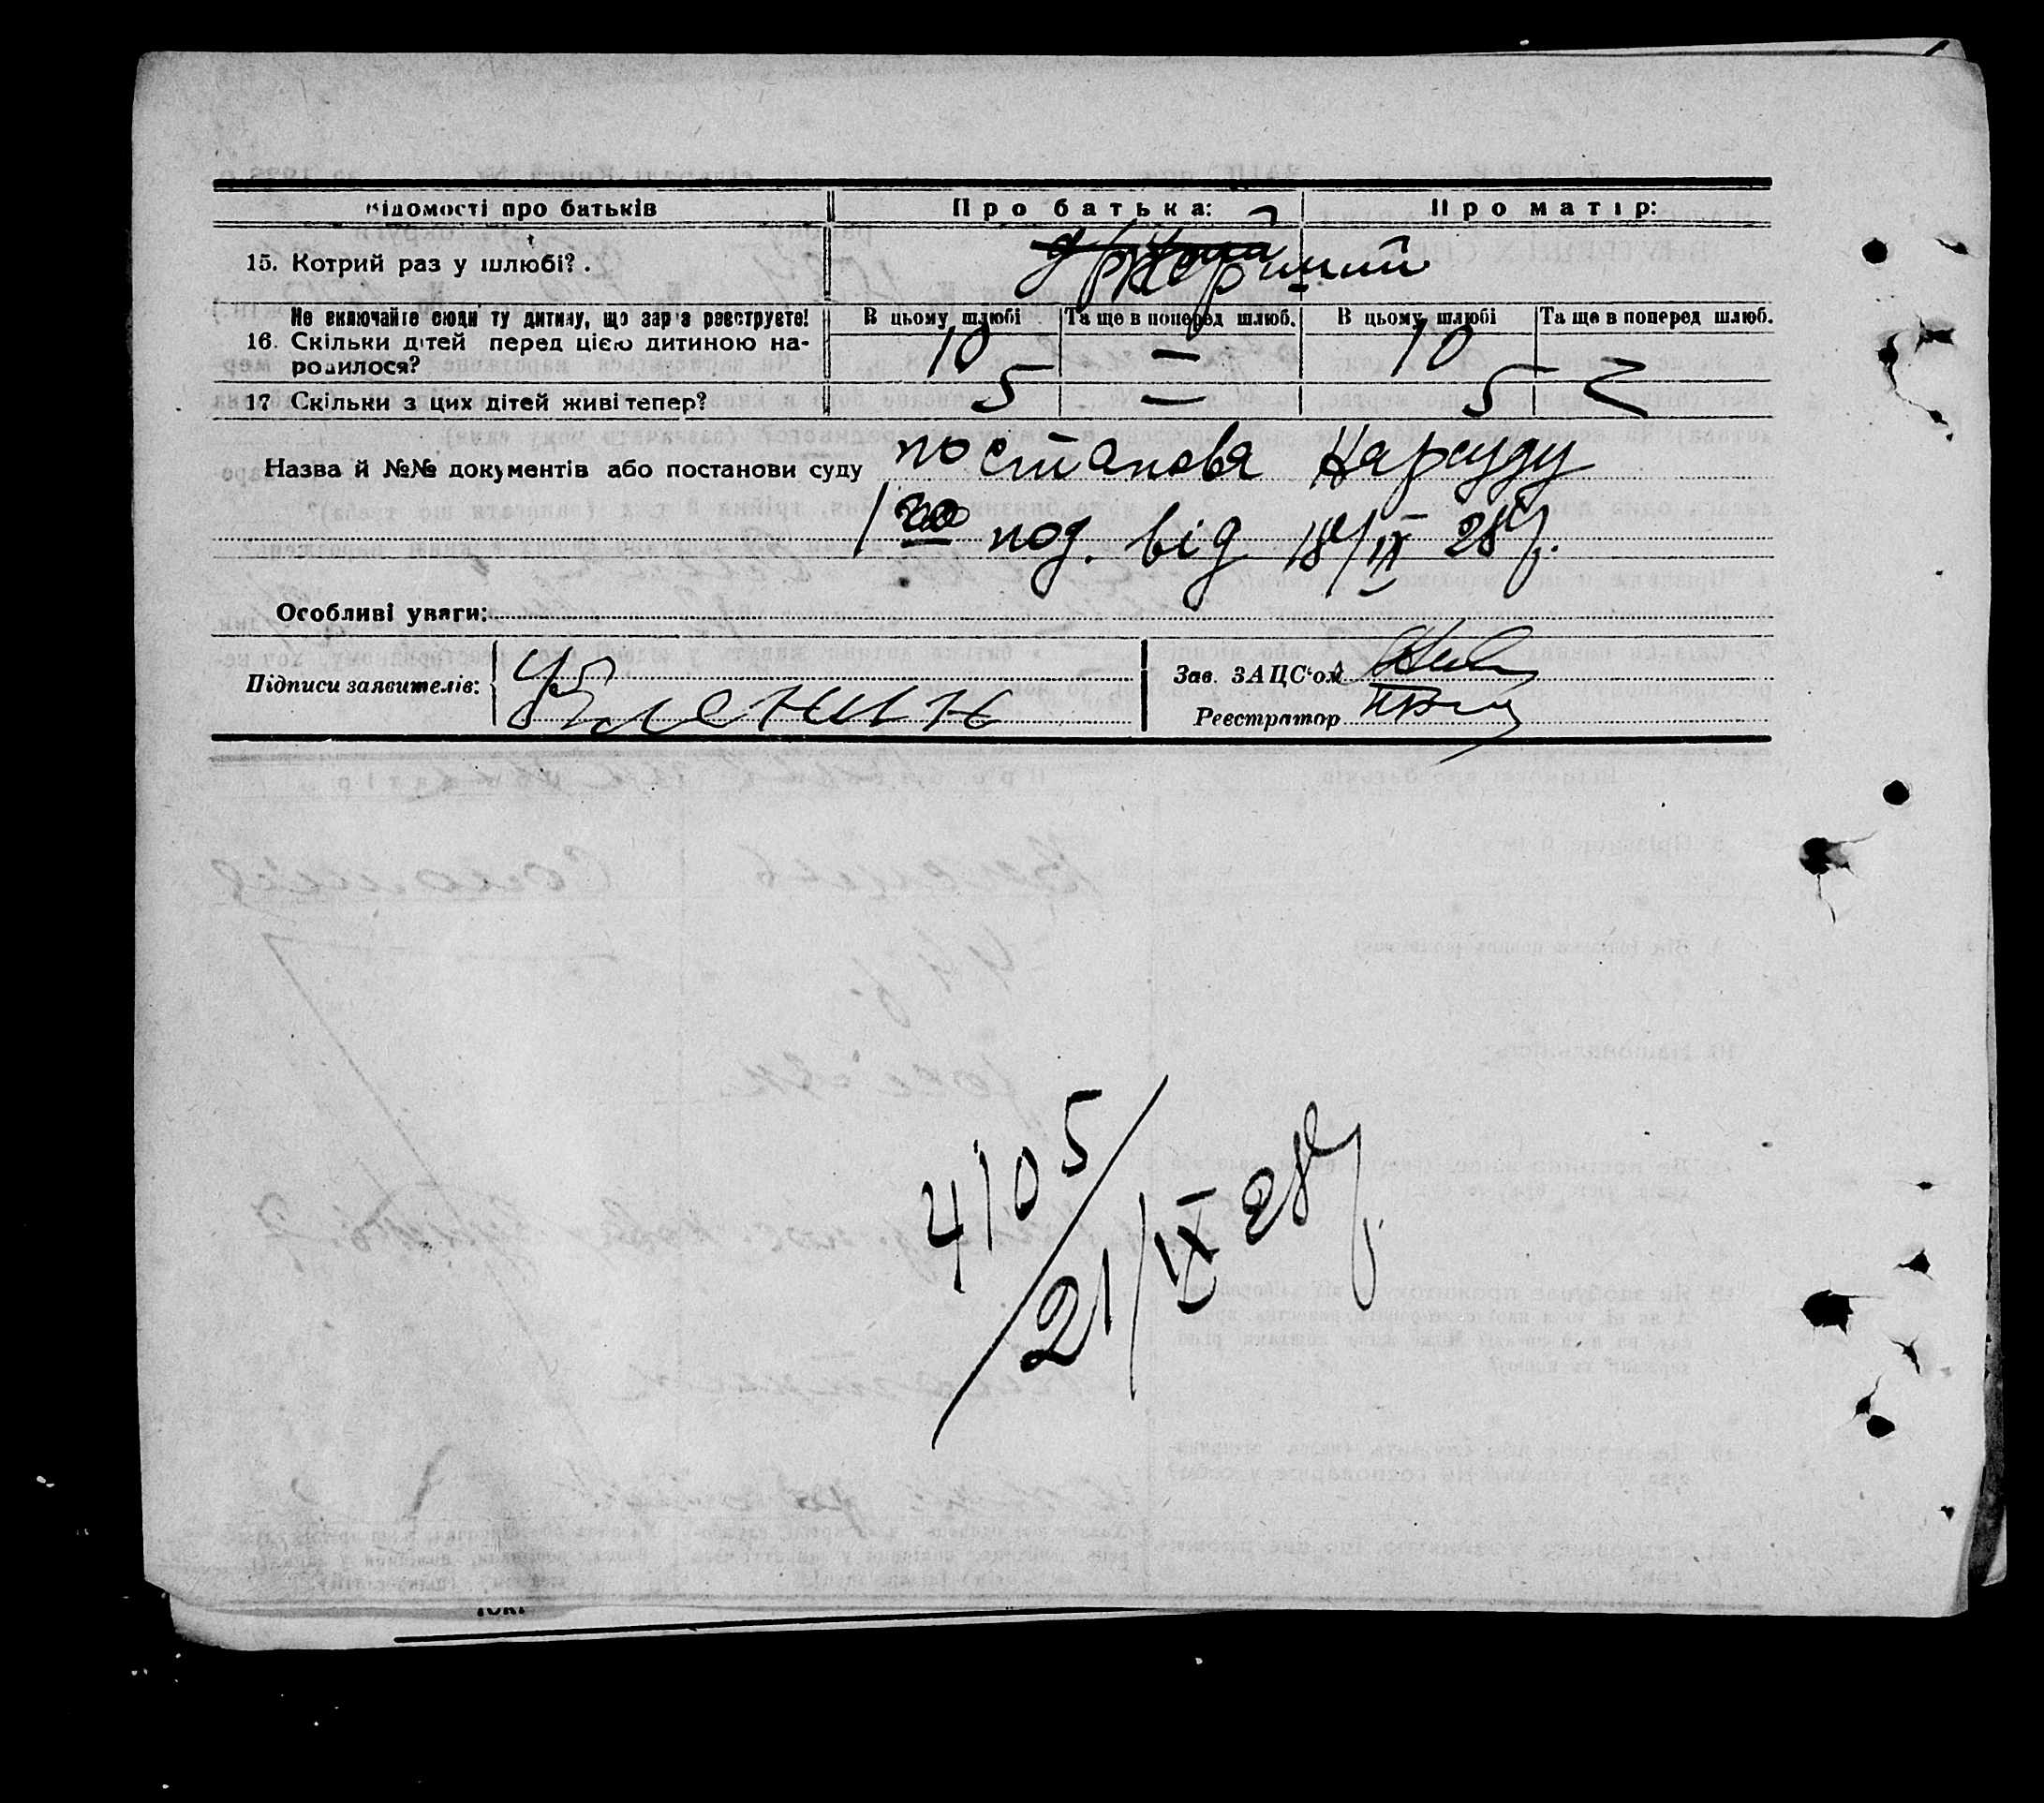 Відомості про батьків Про батька: Про матір:
15. Котрий раз у шлюбі? перший
Не включайте сюди ту дитину, що зараз реєструєте! В цьому шлюбі Та ще в поперед шлюб. В цьому шлюбі Та ще в поперед шлюб.
16. Скільки дітей перед цією дитиною на-
родилося? 10 — 10
17 Скільки з цих дітей живі тепер? 5 — 5
Назва й №№ документів або постанови суду постанова Нарсуду
1го под. від 18/IX 28 р.
Особливі уваги:
Підписи заявителів:
Зав. ЗАЦС'ом
Реєстратор
4105/21/IX 28 р.